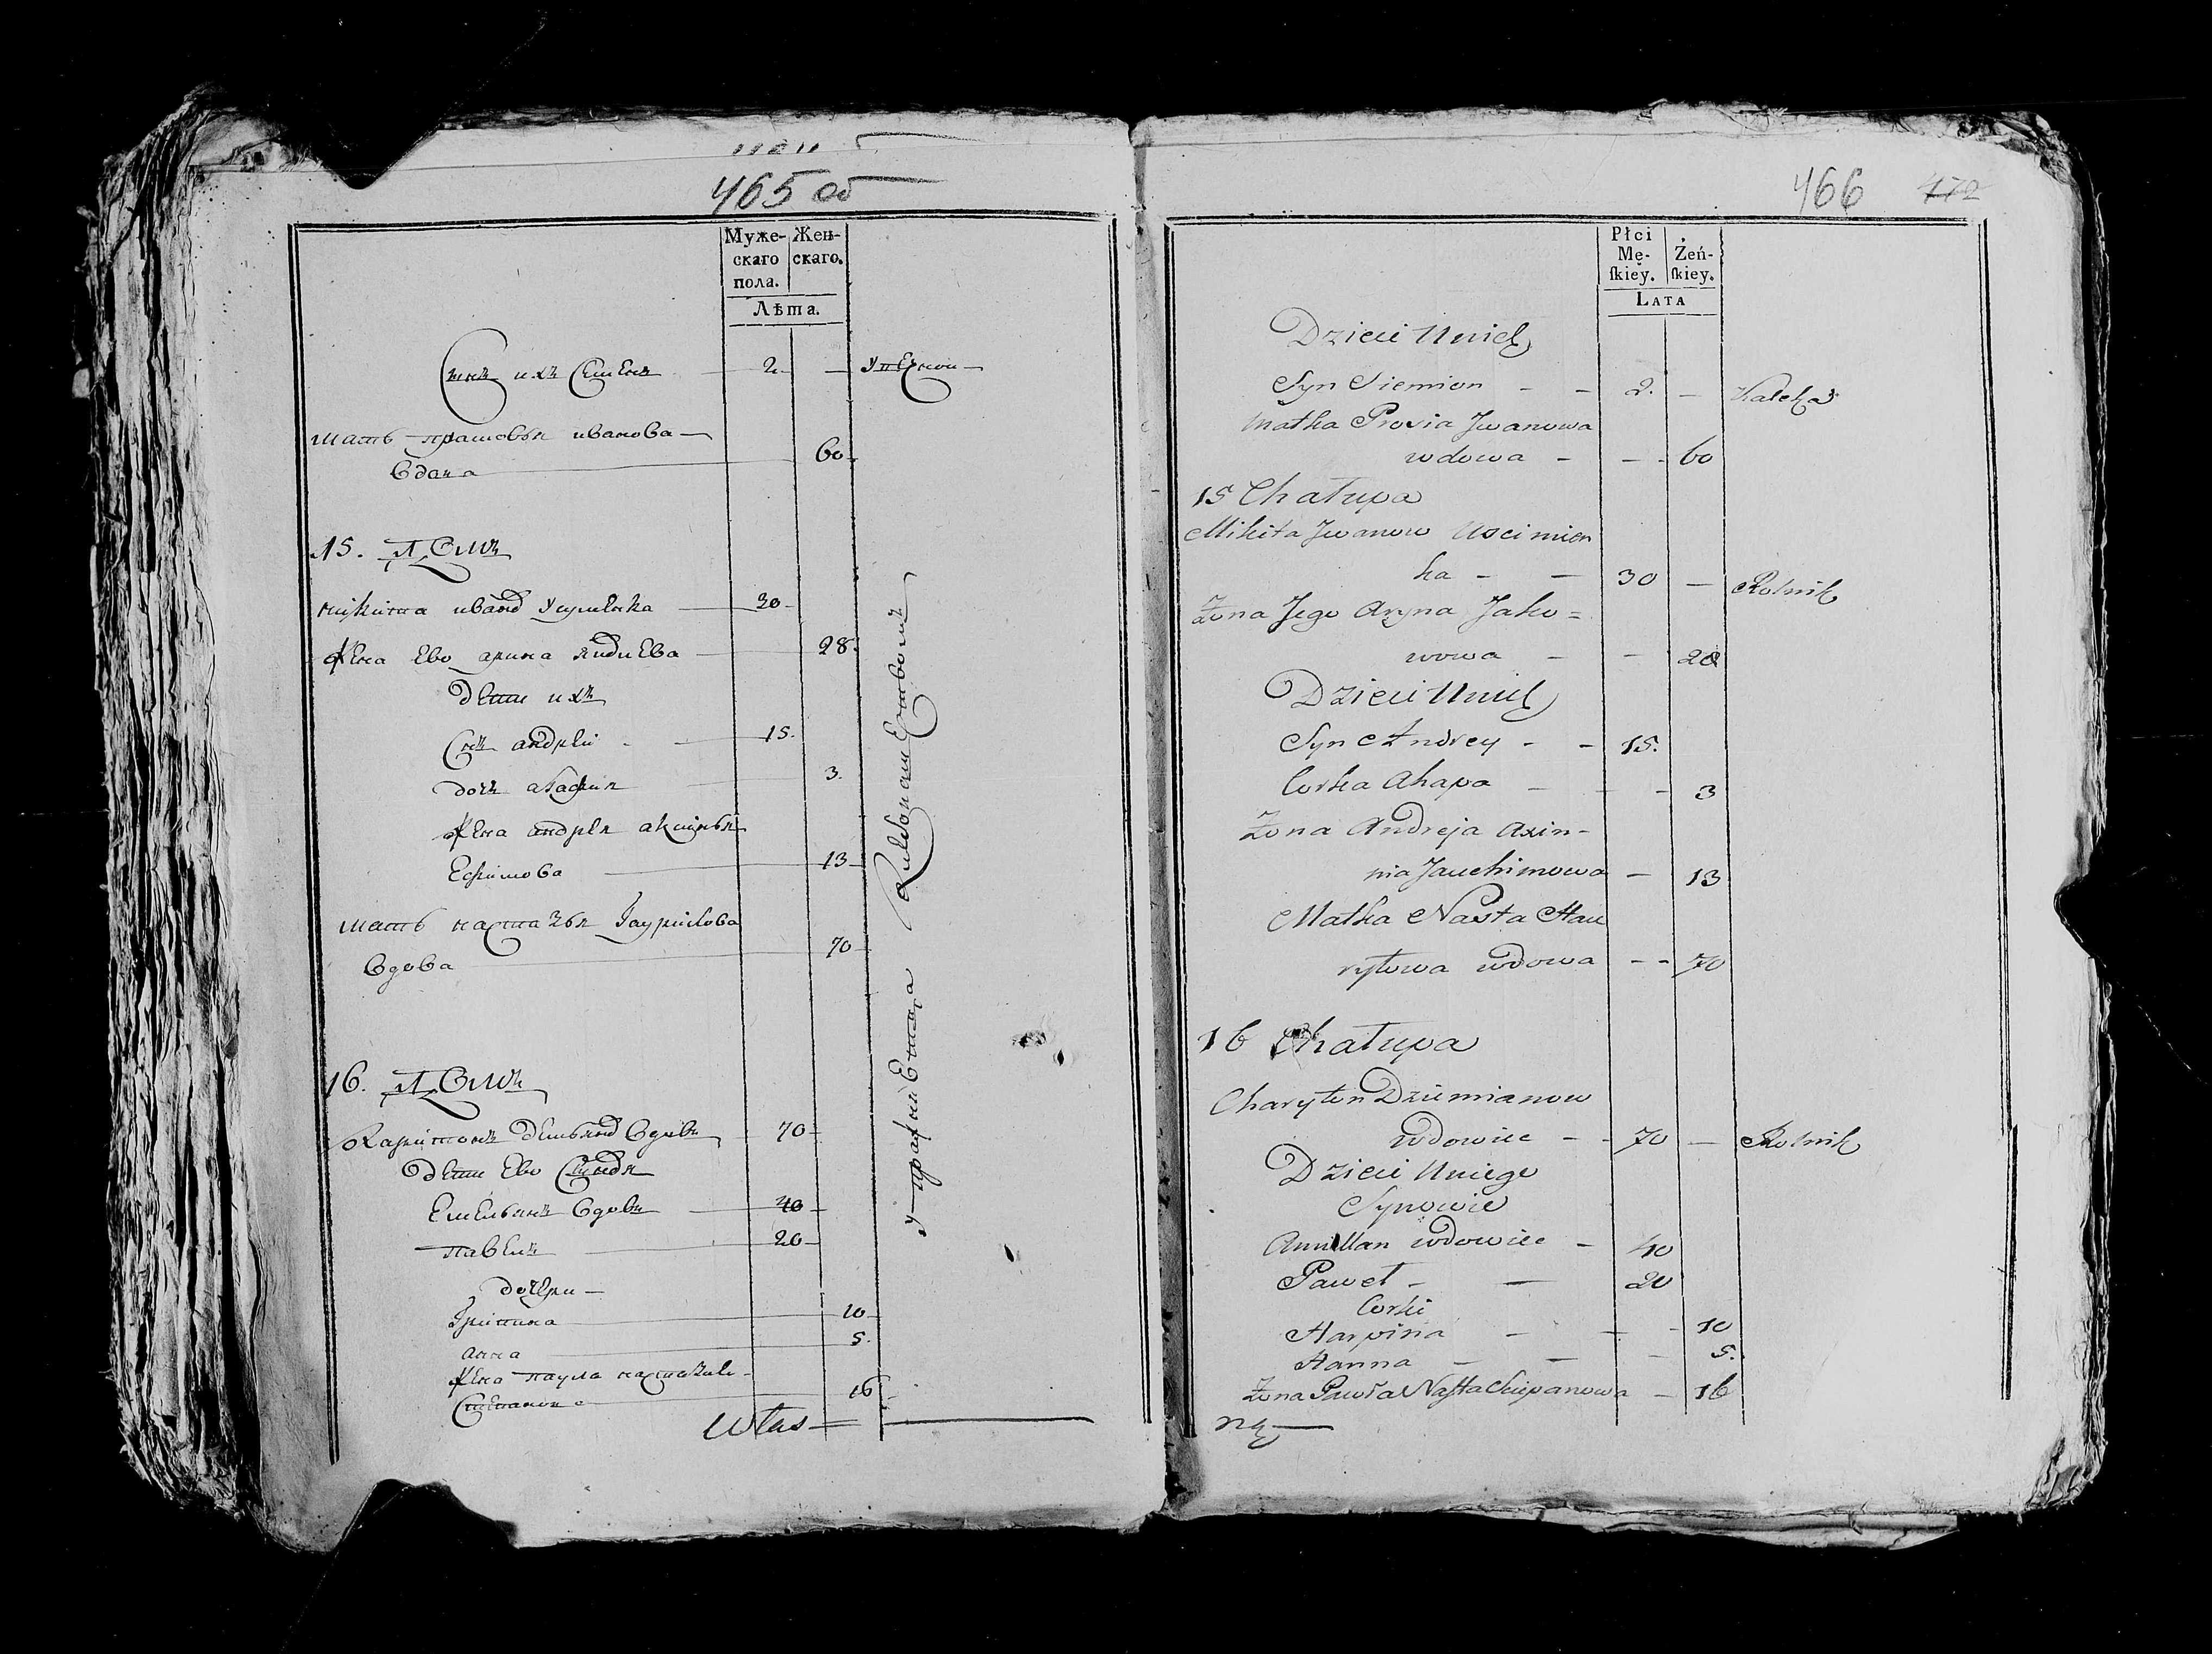 465 об
Муже-
скаго
пола.
Жен-
скаго.
Лѣта.
Сынъ ихъ Семенъ 2 —
мать прасковья иванова —
вдова 60
15. ДОМЪ
никита иванов 30
жена Ево арина 28.
дети ихъ
Снъ андрей 15.
дочь агафия 3.
жена андрея аксинья
Ефимова 13
мать настазья
вдова 70
16. ДОМЪ
Харитонъ демьянов вдовъ 70
дети Ево Сыновя
Емельянъ вдовъ 40
павелъ 20
дочери —
10
анна 5.
жена паула
Степанова 16
Włas —
466 472
Płci
Mę-
ſkiey.
Żeń-
ſkiey.
LATA
Dzieci Unich
Syn Siemion - - 2. — Kaleka
Matka Prosia Jwanowa
wdowa - - - 60
15 Chałupa
Mikita Jwanow Uscimien
ka - — 30 — Rolnik
Żona Jego Aryna Jako=
wowa - - 28
Dzieci Unich
Syn Andrey - - 15.
Corka Ahapa - - - 3
Żona Andreja Axin-
nia Jauchimowa — 13
Matka Nasta Hau
ryłowa wdowa - - 70
16 Chałupa
Charyton Dziemianow
wdowiec - - 70 — Rolnik
Dzieci Uniego
Synowie
wdowiec - 40
Paweł - — 20
Corki
Harpina - - - 10
Hanna - - - 5.
Żona Pawła Nasta Sciepanowa — 16
ną —